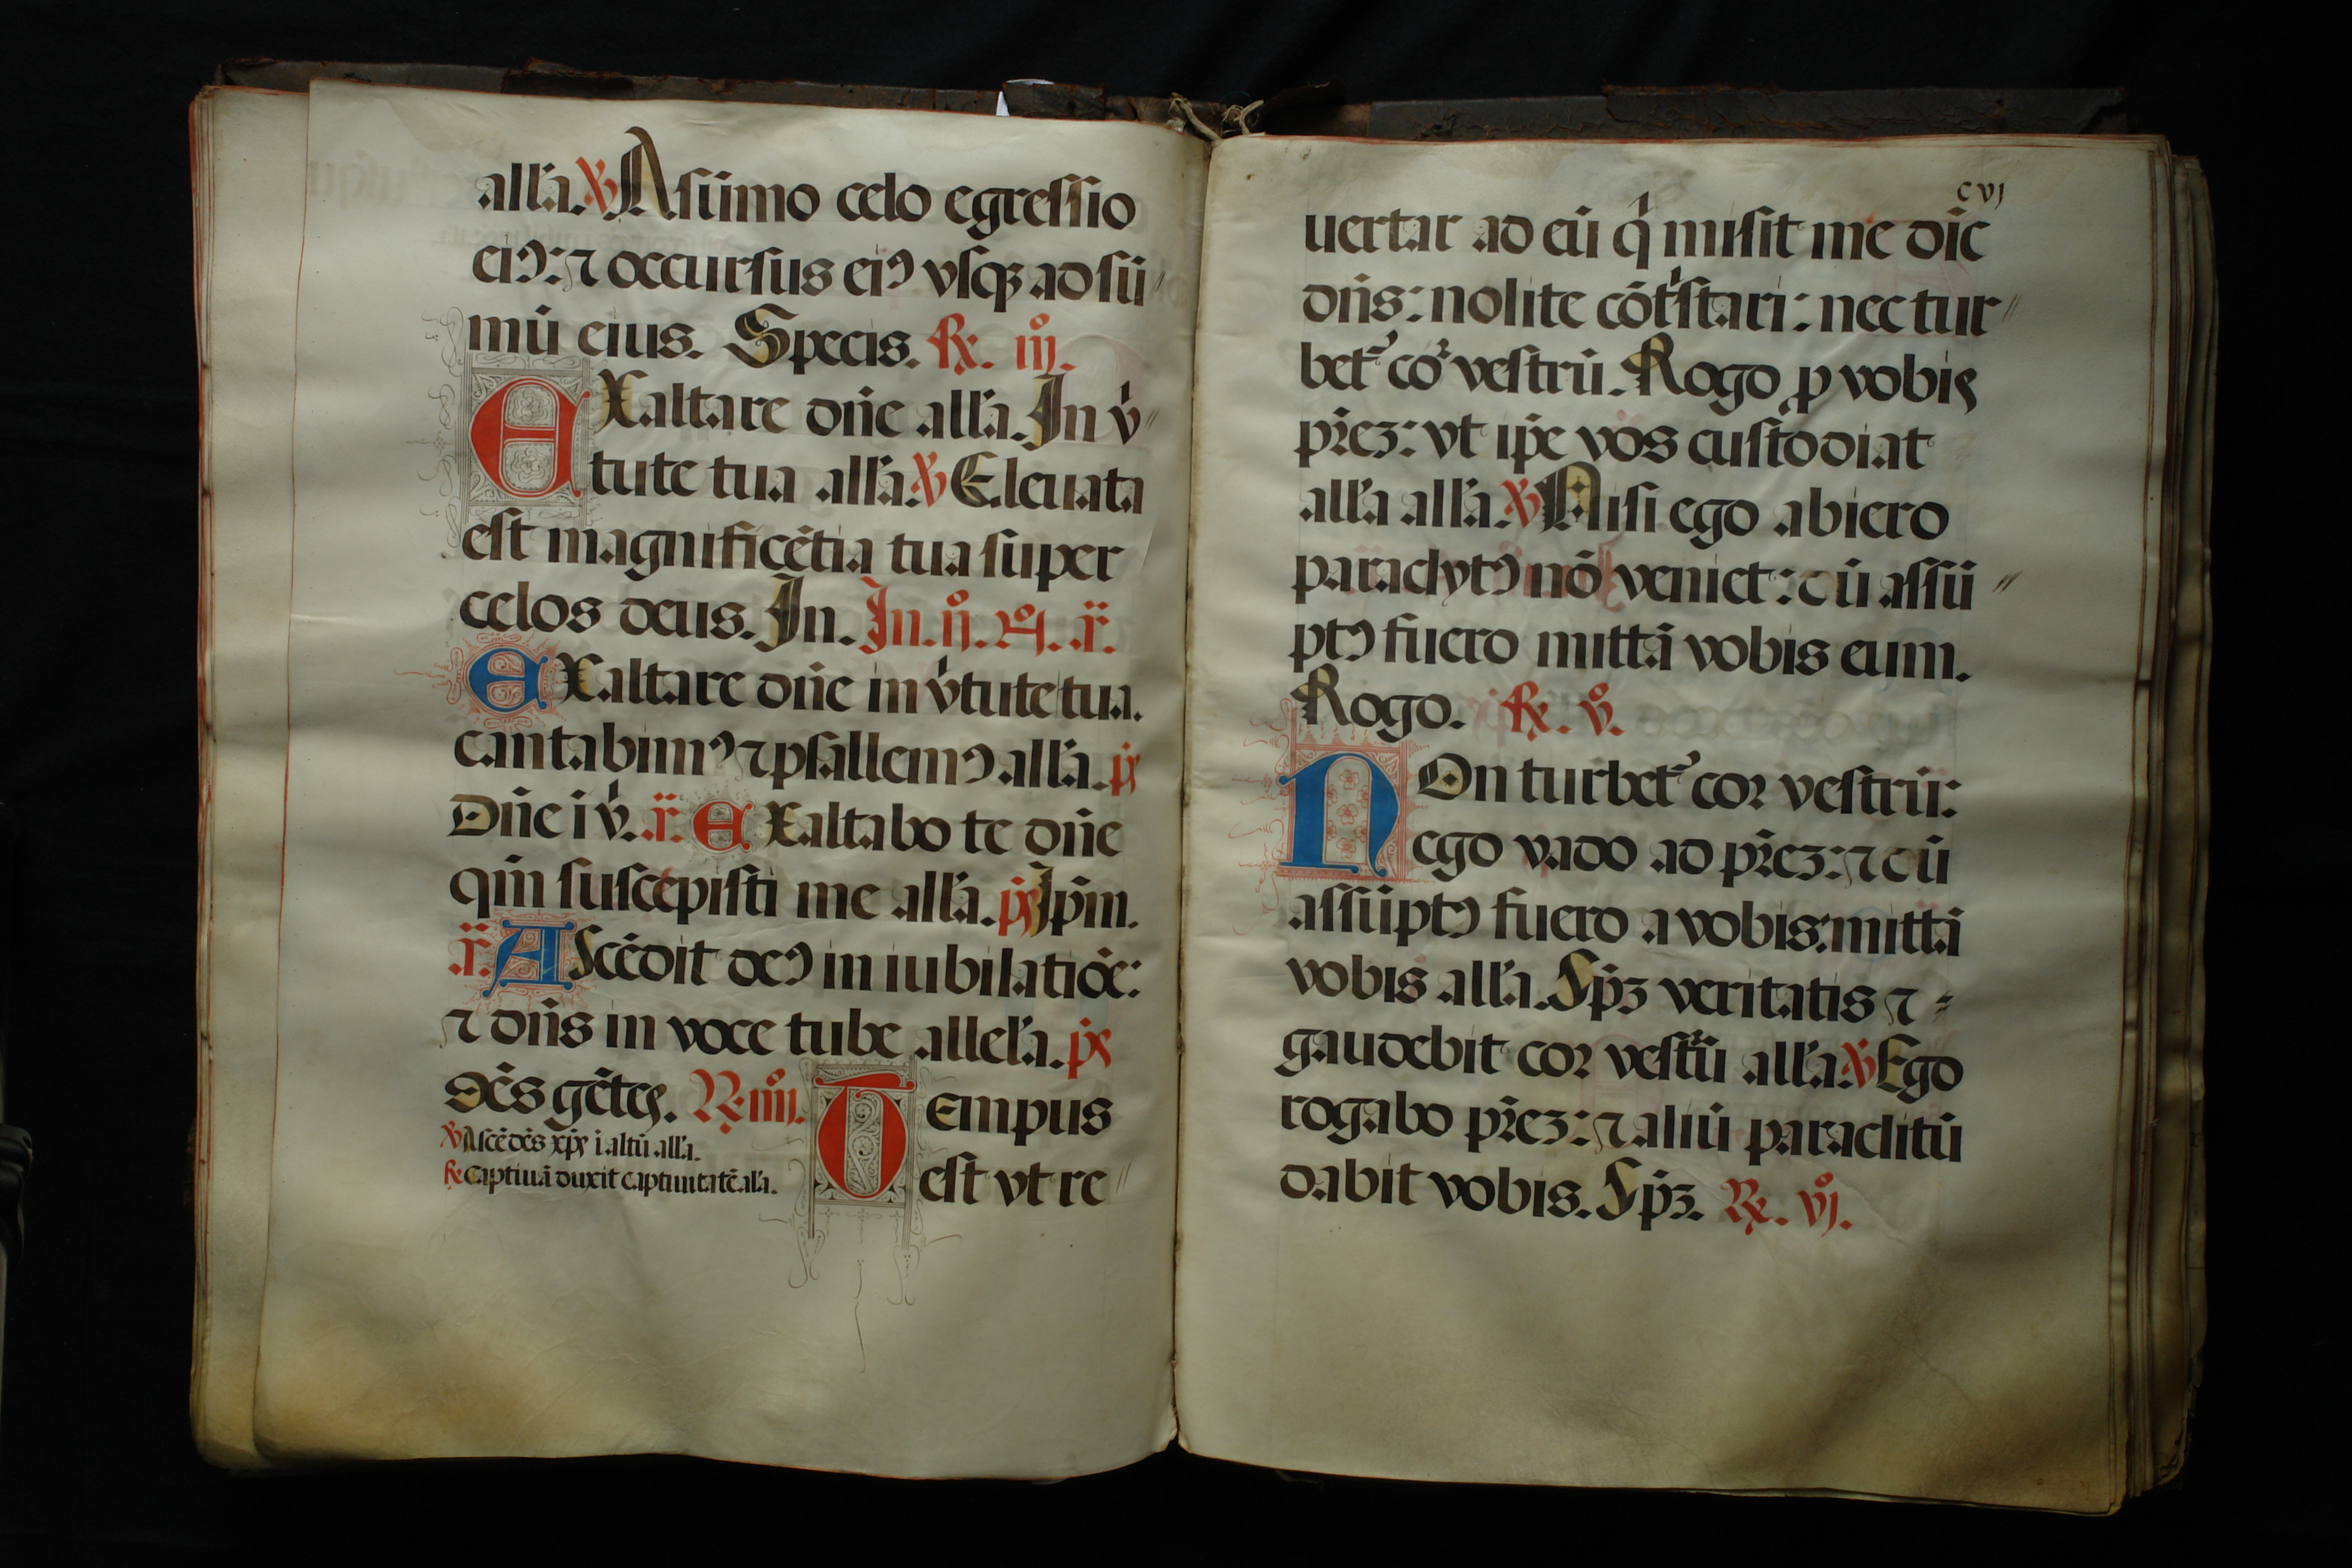 all'a. ℣ A sūmo celo egressio
eiꝰ: ⁊ occursus eiꝰ vsqꝫ ad sū
mū eius. Specis. ℟. iij.
EXaltare dn̄e all'a. In v̓
tute tua all'a. ℣ Eleuata
est magnificētia tua super
celos deus. In. In. ij. No. a.
EXaltare dn̄e in v̓tute tua.
cantabimꝰ ⁊ psallemꝰ all'a. ps
Dn̄e i v̓. a. EXaltabo te dn̄e
qm̄ suscepisti me all'a. ps Ip̄m.
a. AScēdit deꝰ in iubilatiōe:
⁊ dn̄s in voce tube allel'a. ps
Oēs gētes. ℟. iiij. Tempus
℣ Ascēdēs xp̄s i altū all'a.
℟ Captiuā duxit captiuitatē al'a.
est vt re
cvj
uertar ad eū q̇ misit me dic̄
dn̄s: nolite cōtⁱstari: nec tur
bet᷑ co᷑ vestrū. Rogo ꝓ vobis
pr̄eꝫ: vt ip̄e vos custodiat
all'a all'a. ℣ Nisi ego abiero
paraclytꝰ nō veniet: cū assū
ptꝰ fuero mittā vobis eum.
Rogo. ℟. v.
NOn turbet᷑ cor vestrū:
ego vado ad pr̄eꝫ: ⁊ cū
assūptꝰ fuero a vobis: mittā
vobis all'a. Sp̄ꝫ veritatis ⁊
gaudebit cor vestr̄ū all'a. ℣ Ego
rogabo pr̄eꝫ: ⁊ aliū paraclitū
dabit vobis. Sp̄ꝫ. ℟. vj.